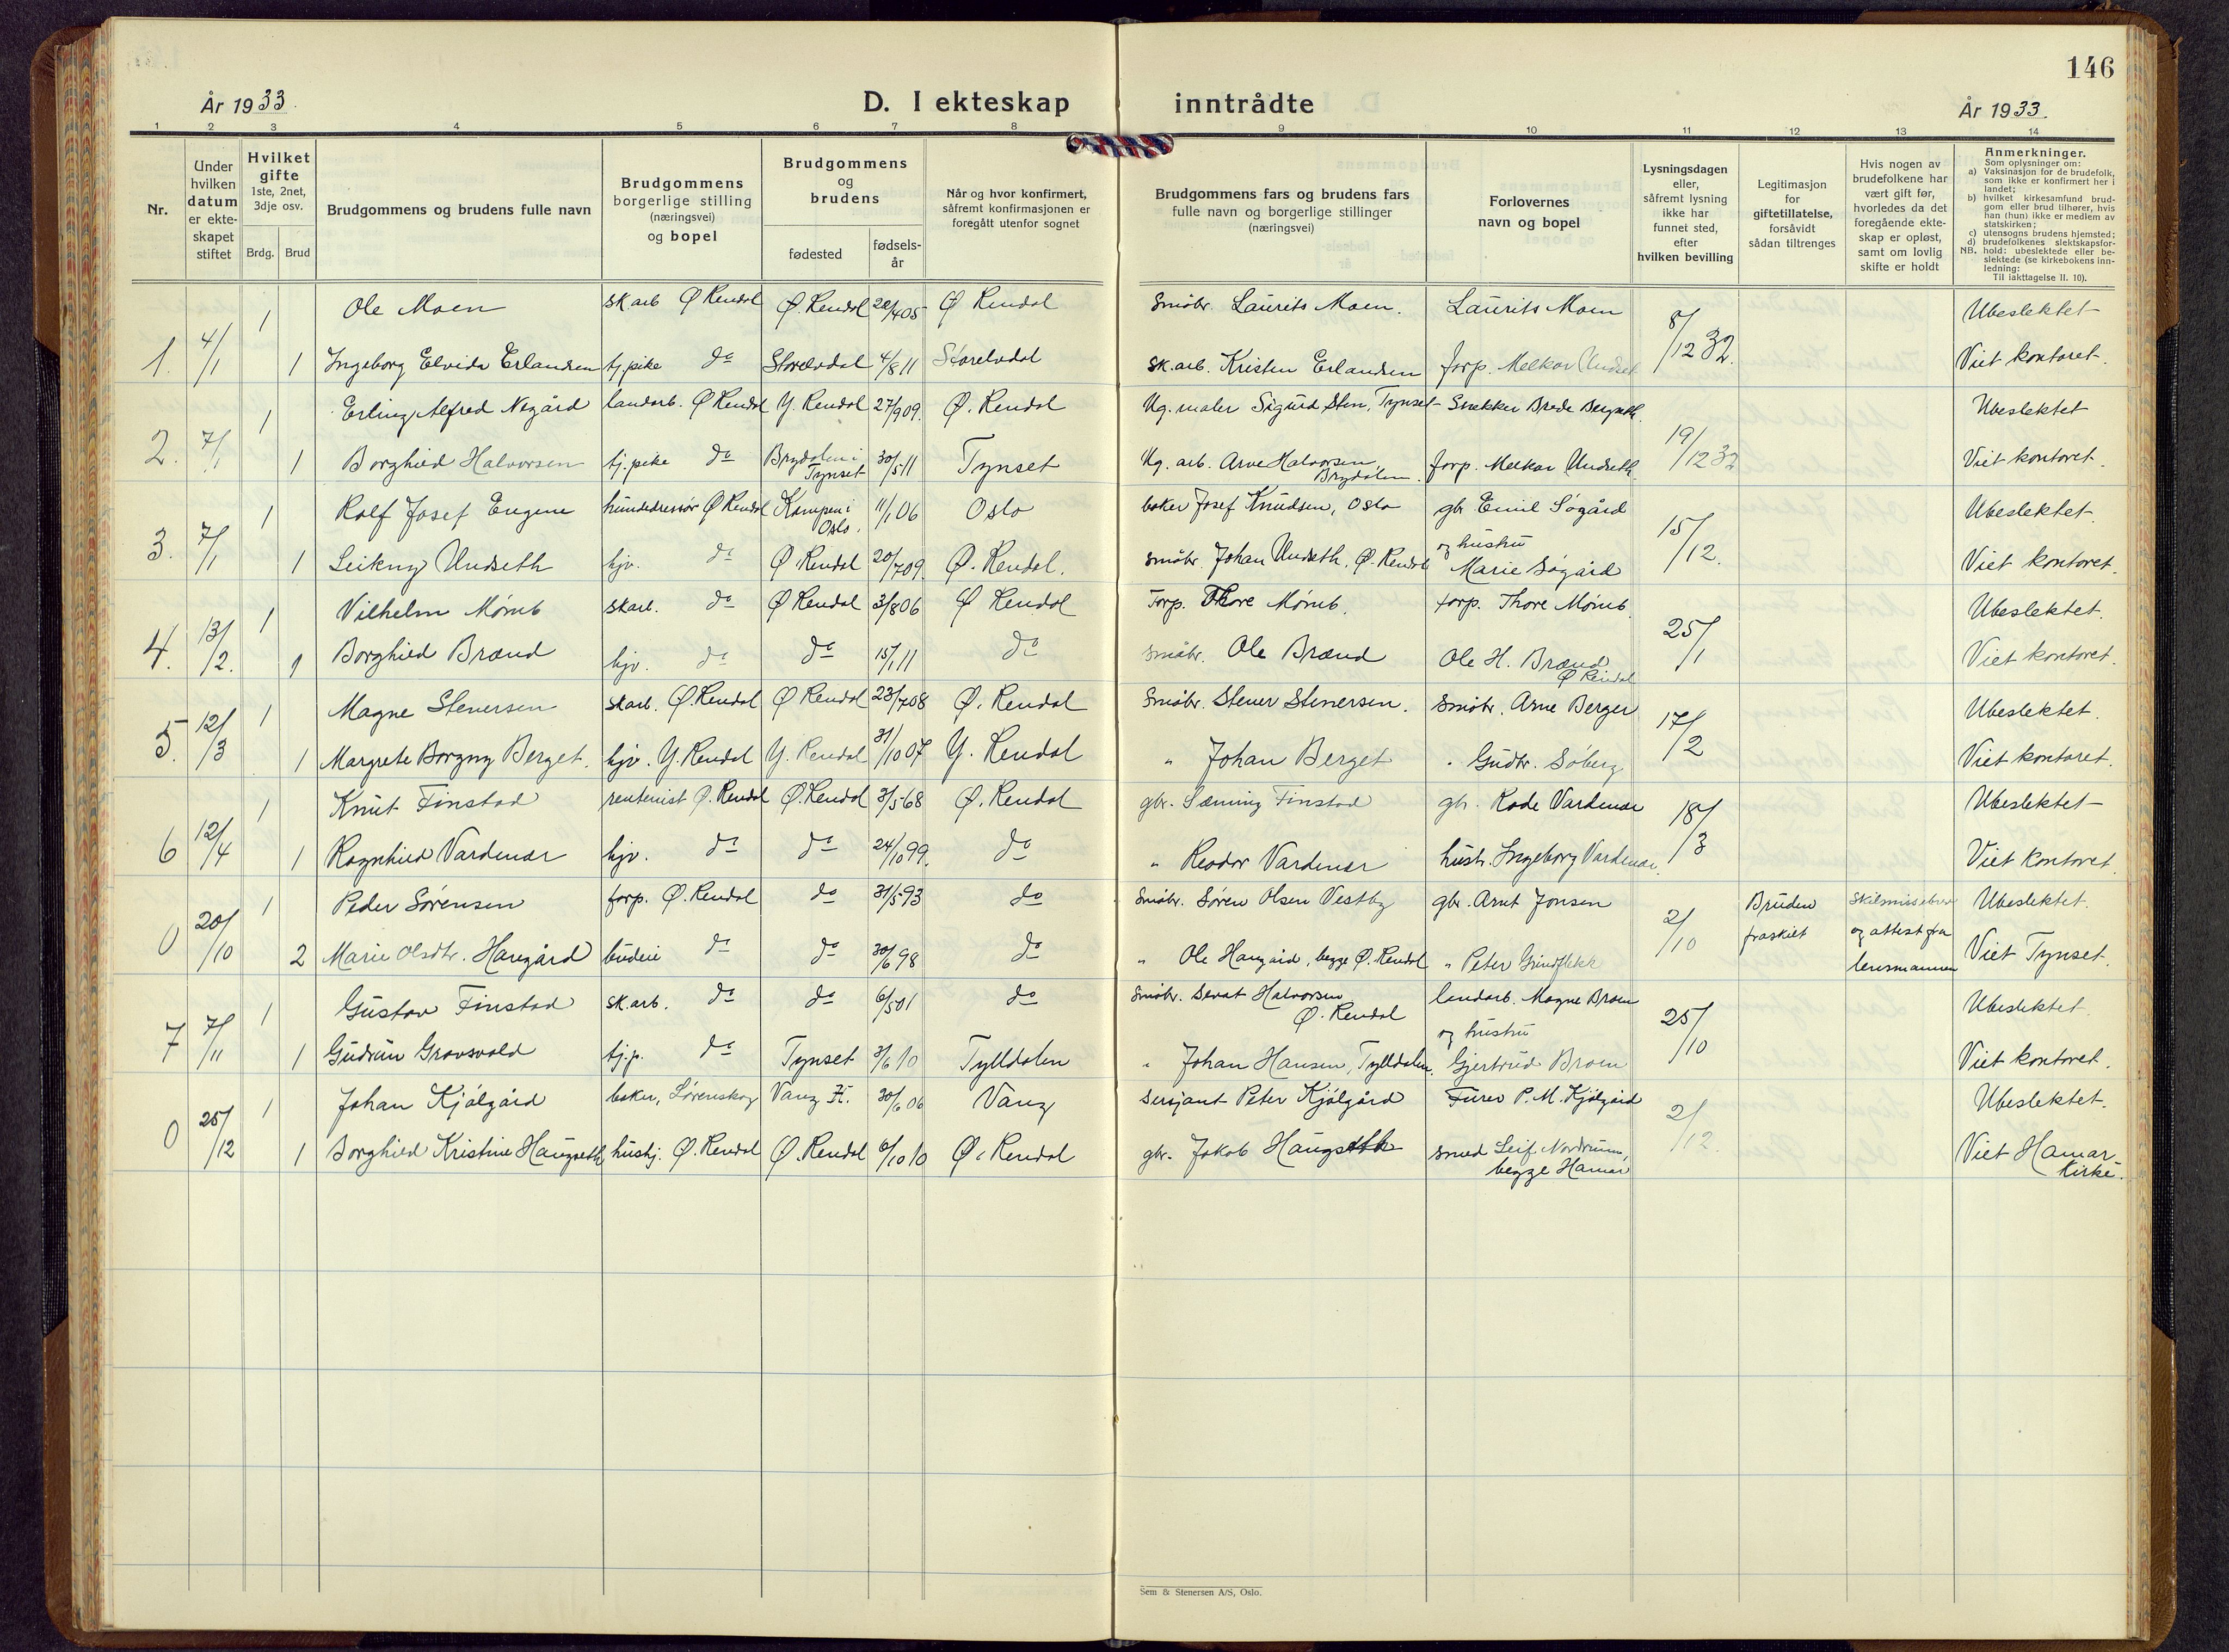 146
År 1933.
D. I ekteskap inntrådte
År 1933.
1 2 3 4 5 6 7 8 9 10 11 12 13 14
Nr.
Under hvilken datum er ekte-skapet stiftet
Hvilket gifte 1ste, 2net, 3dje osv.
Brdg. Brud
Brudgommens og brudens fulle navn
Brudgommens borgerlige stilling (næringsvei) og bopel
Brudgommens og brudens
fødested
fødsels-år
Når og hvor konfirmert, såfremt konfirmasjonen er foregått utenfor sognet
Brudgommens fars og brudens fars fulle navn og borgerlige stillinger (næringsvei)
Forlovernes navn og bopel
Lysningsdagen eller, såfremt lysning ikke har funnet sted, efter hvilken bevilling
Legitimasjon for giftetillatelse, forsåvidt sådan tiltrenges
Hvis nogen av brudefolkene har vært gift før, hvorledes da det foregående ekte-skap er opløst, samt om lovlig skifte er holdt
Anmerkninger.
Som oplysninger om:
a) Vaksinasjon for de brudefolk, som ikke er konfirmert her i landet;
b) hvilket kirkesamfund brud-gom eller brud tilhører, hvis han (hun) ikke er medlem av statskirken;
c) utensogns brudens hjemsted;
d) brudefolkenes slektskapsfor-hold: ubeslektede eller be-slektede (se kirkebokens inn-ledning:
NB. Til iakttagelse II. 10).
1. 4/1 1 Ole Moen sk.arb Ø Rendal Ø. Rendal 20/4 05 Ø Rendal Småbr. Laurits Moen. Laurits Moen 8/12 32. Ubeslektet
1 Ingeborg Elvida Erlandsen tj.pike do Storelvdal 4/8 11 Storelvdal Sk.arb. Kristen Erlandsen forp. Melkor Undset Viet kontoret.
2. 7/1 1 Erling Alfred Negård landarb. Ø Rendal Y. Rendal 27/9 09. Ø. Rendal Ug. maler Sigurd Sten, Tynset Snekker Brede Bergseth. 19/12 32 Ubeslektet
1 Borghild Halvorsen tj.pike do Brydalen i Tynset 30/5 11 Tynset Ug. arb. Arve Halvorsen Brydalen. forp. Melkor Undseth. Viet kontoret.
3. 7/1 1 Rolf Josef Eugene hundedressør Ø Rendal Kampen i Oslo. 11/1 06 Oslo baker Josef Knudsen, Oslo gbr Emil Søgård 15/12. Ubeslektet.
1 Leikny Undseth hjv. do Ø Rendal 20/7 09. Ø. Rendal. småbr. Johan Undseth, Ø. Rendal og hustru Marie Søgård Viet kontoret.
4. 13/2. 1 Vilhelm Mømb skarb. do Ø Rendal 3/8 06 Ø Rendal Forp. Thore Mømb. forp. Thore Mømb. 25/1 Ubeslektet.
1 Borghild Brænd hjv. do do 15/1 11 do småbr. Ole Brænd Ole H. Brænd Ø Rendal Viet kontoret.
5. 12/3 1 Magne Stenersen skarb. Ø. Rendal Ø Rendal 23/7 08 Ø. Rendal Småbr. Stener Stenersen. Småbr. Arne Berger 17/2 Ubeslektet.
1 Margrete Borgny Berget. hjv. Y. Rendal Y. Rendal 31/10 07 Y. Rendal " Johan Berget " Gudbr. Søberg Viet kontoret.
6 12/4 1 Knut Finstad rentenist Ø. Rendal Ø. Rendal 3/5 68 Ø. Rendal gbr. Sæming Finstad gbr. Rode Vardenær 18/3 Ubeslektet
1 Ragnhild Vardenær hjv. do do 24/10 99. do " Reodor Vardenær hustr. Ingeborg Vardenær. Viet kontoret
0 20/10 1 Peder Sørensen forp. Ø. Rendal do 31/5 93 do Småbr. Søren Olsen Vestby gbr. Arnt Jonsen 2/10 Bruden fraskilt Skilsmissebrev og attest fra lensmannen Ubeslektet.
2 Marie Olsdtr. Hangård budeie do do 30/6 98 do " Ole Hangård, begge Ø. Rendal " Peter Grindflekk Viet Tynset.
7 7/11 1 Gustav Finstad sk.arb. do do 6/5 01 do Småbr. Sevat Halvorsen Ø. Rendal landarb. Magne Broen 25/10 Ubeslektet
1 Gudrun Gravsvold tj.p. do Tynset 3/6 10 Tylldalen " Johan Hansen, Tylldalen. og hustru Gjertrud Broen Viet kontoret.
0 25/12 1 Johan Kjølgård baker, Lørenskog Vang H. 30/6 06 Vang Sersjant Peter Kjølgård Furer P. M. Kjølgård 2/12. Ubeslektet.
1 Borghild Kristine Haugseth hushj. Ø. Rendal Ø. Rendal 6/10 10 Ø. Rendal gbr. Jakob Haugseth smed Leif Nordrum, begge Hamar Viet Hamar Kirke.
Sem & Stenersen A/S, Oslo.